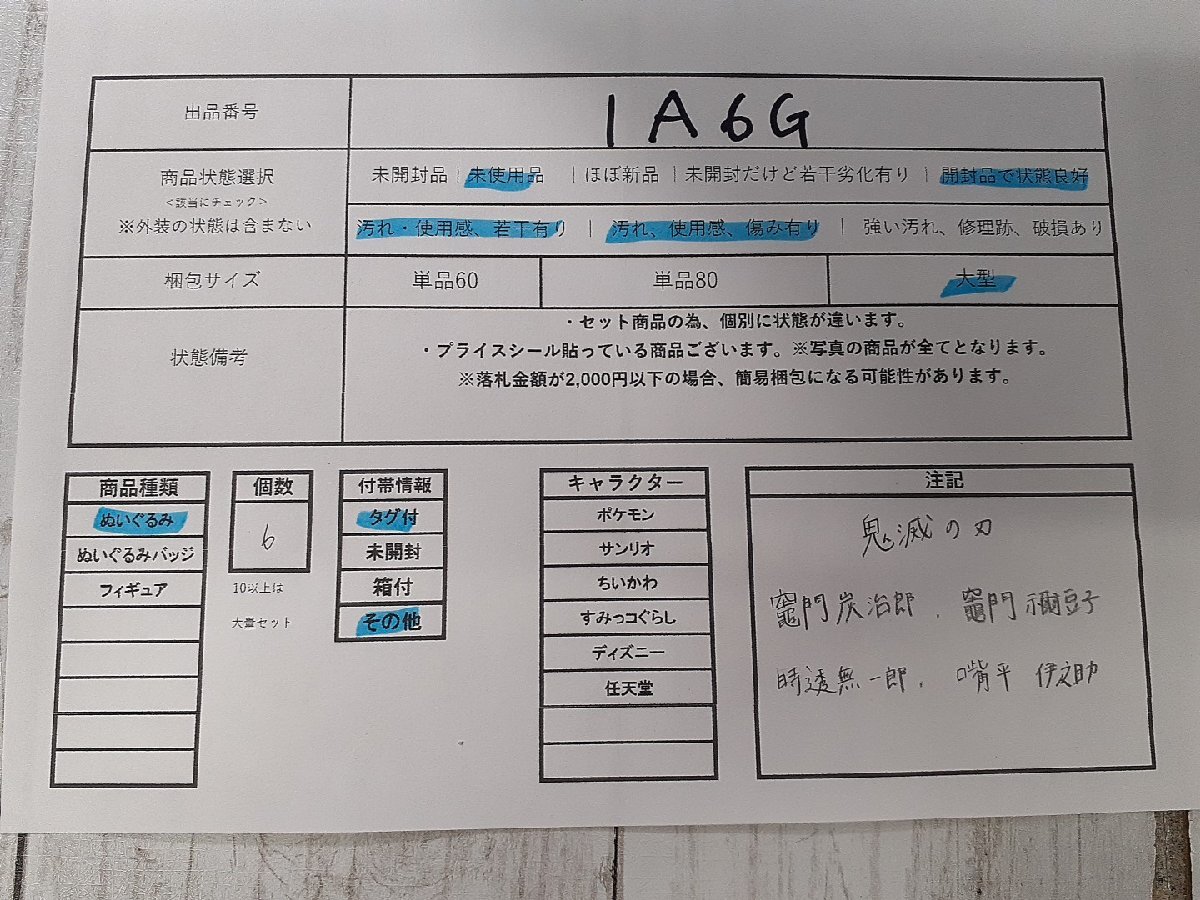 出品番号
1A6G
商品状態選択
<該当にチェック>
※外装の状態は含まない
未開封品 | 未使用品 | ほぼ新品 | 未開封だけど若干劣化有り | 開封品で状態良好
汚れ・使用感、若干有り | 汚れ、使用感、傷み有り | 強い汚れ、修理跡、破損あり
梱包サイズ
単品60
単品80
大型
状態備考
・セット商品の為、個別に状態が違います。
・プライスシール貼っている商品ございます。※写真の商品が全てとなります。
※落札金額が2,000円以下の場合、簡易梱包になる可能性があります。
商品種類
ぬいぐるみ
ぬいぐるみバッジ
フィギュア
個数
6
10以上は
大量セット
付帯情報
タグ付
未開封
箱付
その他
キャラクター
ポケモン
サンリオ
ちいかわ
すみっコぐらし
ディズニー
任天堂
注記
鬼滅の刃
竈門炭治郎、竈門禰豆子
時透無一郎、嘴平 伊之助